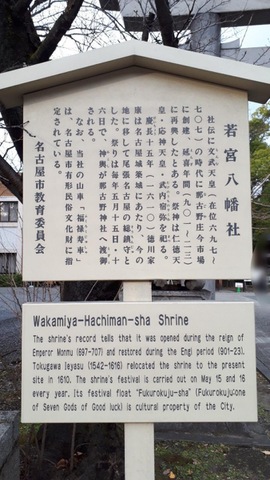 若宮八幡社
社伝に文武天皇(在位六九七〜
七〇七)の時代に那古野庄今市場
に創建、延喜年間(九〇一〜二三)
に再興したとある。祭神は仁徳天
皇・応神天皇・武内宿弥を祀る。
慶長十五年(一六一〇)徳川家
康は名古屋城築城にあたり、今の
地に移して尾張名古屋の総鎮守と
した。祭りは毎年五月十五日・十
六日で、神輿が那古野神社へ渡御
される。
なお、当社の山車「福禄寿車」
は、名古屋市有形民俗文化財に指
定されている。
名古屋市教育委員会
Wakamiya-Hachiman-sha Shrine
The shrine's record tells that it was opened during the reign of
Emperor Monmu (697-707) and restored during the Engi period (901-23).
Tokugawa Ieyasu (1542-1616) relocated the shrine to the present
site in 1610. The shrine's festival is carried out on May 15 and 16
every year. Its festival float "Fukurokuju-sha" (Fukurokuju:one
of Seven Gods of Good luck) is cultural property of the City.